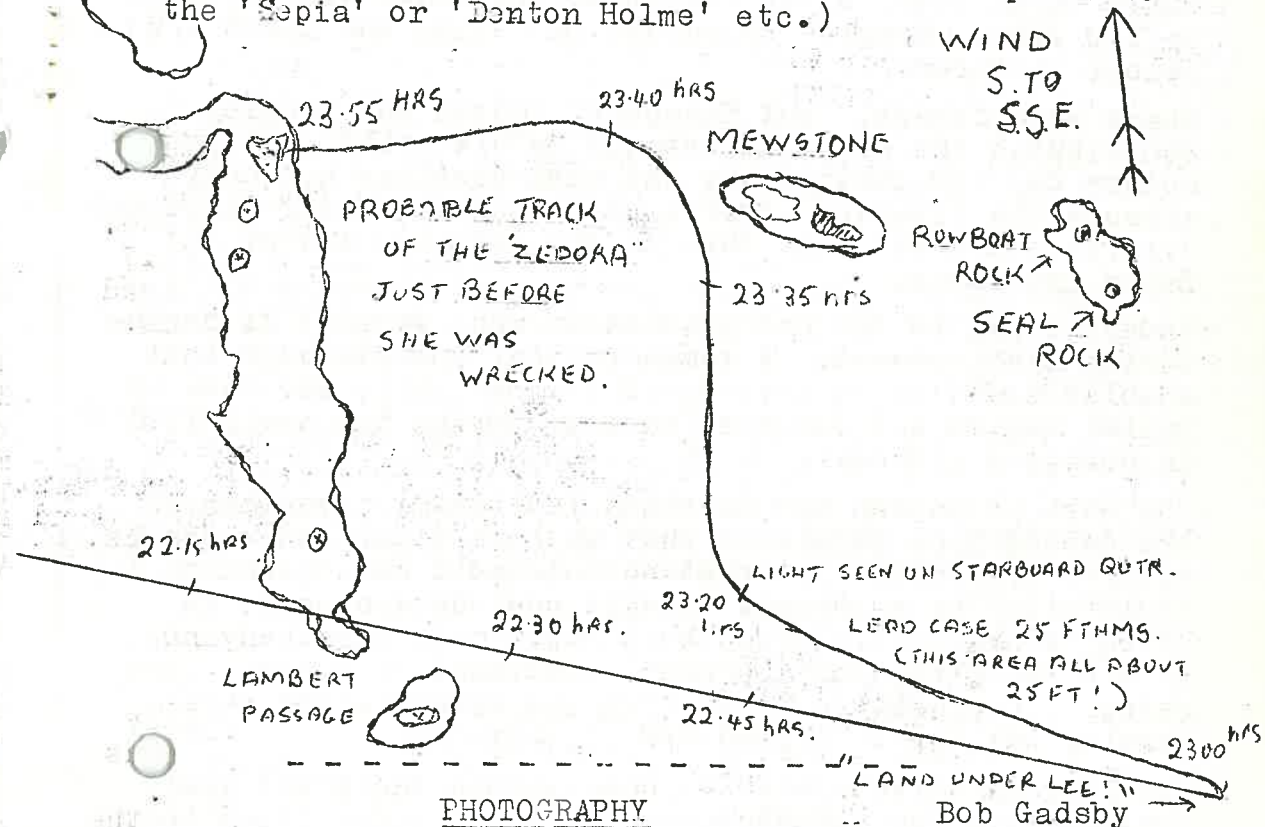 the 'Sepia' or 'Denton Holme' etc.)
WIND
S. TO
S.S.E.
23·55 HRS
23·40 hRS
MEWSTONE
PROBABLE TRACK
OF THE "ZEDORA"
JUST BEFORE
SHE WAS
WRECKED.
ROWBOAT
ROCK
23·35 hrs
SEAL
ROCK
22·15 hRS
LIGHT SEEN ON STARBOARD QUTR.
23·20
hrs
22·30 hRS.
LEAD CASE 25 FTHMS.
(THIS AREA ALL ABOUT
25 FT!)
LAMBERT
PASSAGE
22·45 hRS.
2300 hRS
"LAND UNDER LEE!"
PHOTOGRAPHY
Bob Gadsby